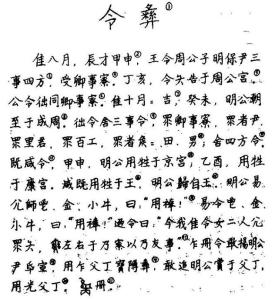 令彝①
隹八月，辰才甲申②，王令周公子明保尹三
事四方，受卿事寮③。丁亥，令夨告于周公宫④。
公令𢓊同卿事寮⑤。隹十月⑥吉，癸未，明公朝
至于成周。𢓊令舍三事令⑦眔卿事寮，眔者尹⑧
眔里君，眔百工，眔者⑨田、男⑩舍四方令。
既咸令⑪甲申，明公用牲于京宫⑫乙酉，用牲
于康宫，咸既用牲于王⑬明公归自王⑭明公易
亢师鬯、金、小牛，曰，“用⑮！”易令鬯、金、
小牛，曰，“用⑯”迺令曰⑰“今我隹令女二人亢
眔夨，左右于乃寮以乃友事⑱乍册令敢扬明公
尹⑲室，用乍父丁宝⑳彝㉑敢追明公赏于父丁，
用光父丁。册㉒